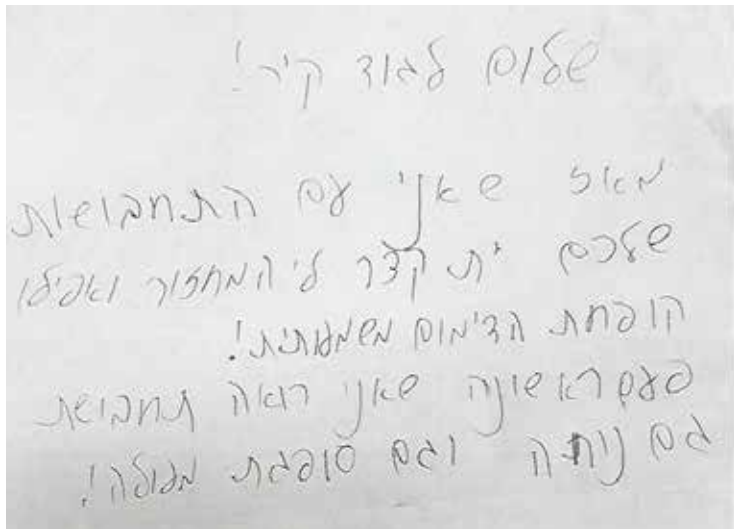 שלום לגוד קיר!
מאז שאני עם התחבושות
שלכם התקצר לי המחזור ואפילו
הופחת הדימום משמעותית!
פעם ראשונה שאני רואה תחבושת
גם נוחה וגם סופגת מעולה!